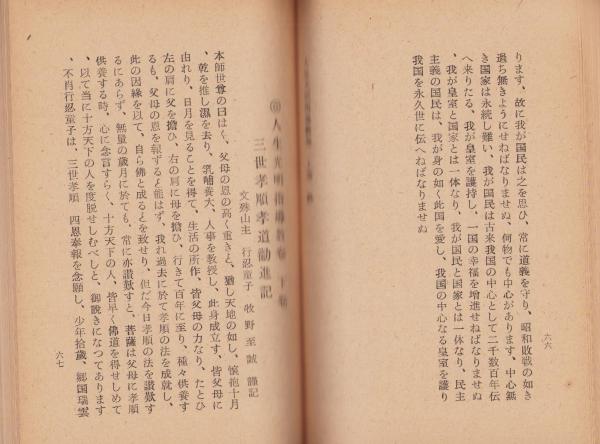 ります、故に我が国民は之を思ひ、常に道義を守り、昭和敗戦の如き
過ち無きようにせねばなりませぬ、何物でも中心があります、中心無
き国家は永続し難い、我が国民は古来我国の中心として二千数百年伝
へ来りたる、我が皇室を護持し、一国の幸福を増進せねばなりませぬ
、我が皇室と国家とは一体なり、我が国民と国家とは一体なり、民主
主義の国民は、我が身の如く此国を愛し、我国の中心なる皇室を護り
我国を永久世に伝へねばなりませぬ
六六
人生光明指導教
三世孝順孝道勧進記
文殊山主 行忍童子 牧野至誠 謹記
本師世尊の曰はく、父母の恩の高く重きと、猶し天地の如し、懐抱十月
、乾を推し濕を去り、乳哺養大、人事を教授し、此身成立す、皆父母に
由れり、日月を見ることを得て、生活の所作、皆父母の力なり、たとひ
左の肩に父を擔ひ、右の肩に母を擔ひ、行きて百年に至り、種々供養す
るも、父母の恩を報ずると能はず、我れ過去に於て孝順の法を成就し、
此の因縁を以て、自ら佛と成るとを致せり、但だ今日孝順の法を讃歎す
るにあらず、無量の歳月に於ても、常に亦讃歎すと、菩薩は父母に孝順
供養する時、心に念言すらく、十方天下の人、皆早く佛道を得せしめて
、以て当に十方天下の人を度脱せしむべしと、御説きになつてあります
、不肖行忍童子は、三世孝順 四恩奉報を念願し、少年拾歳、郷国瑞雲
六七